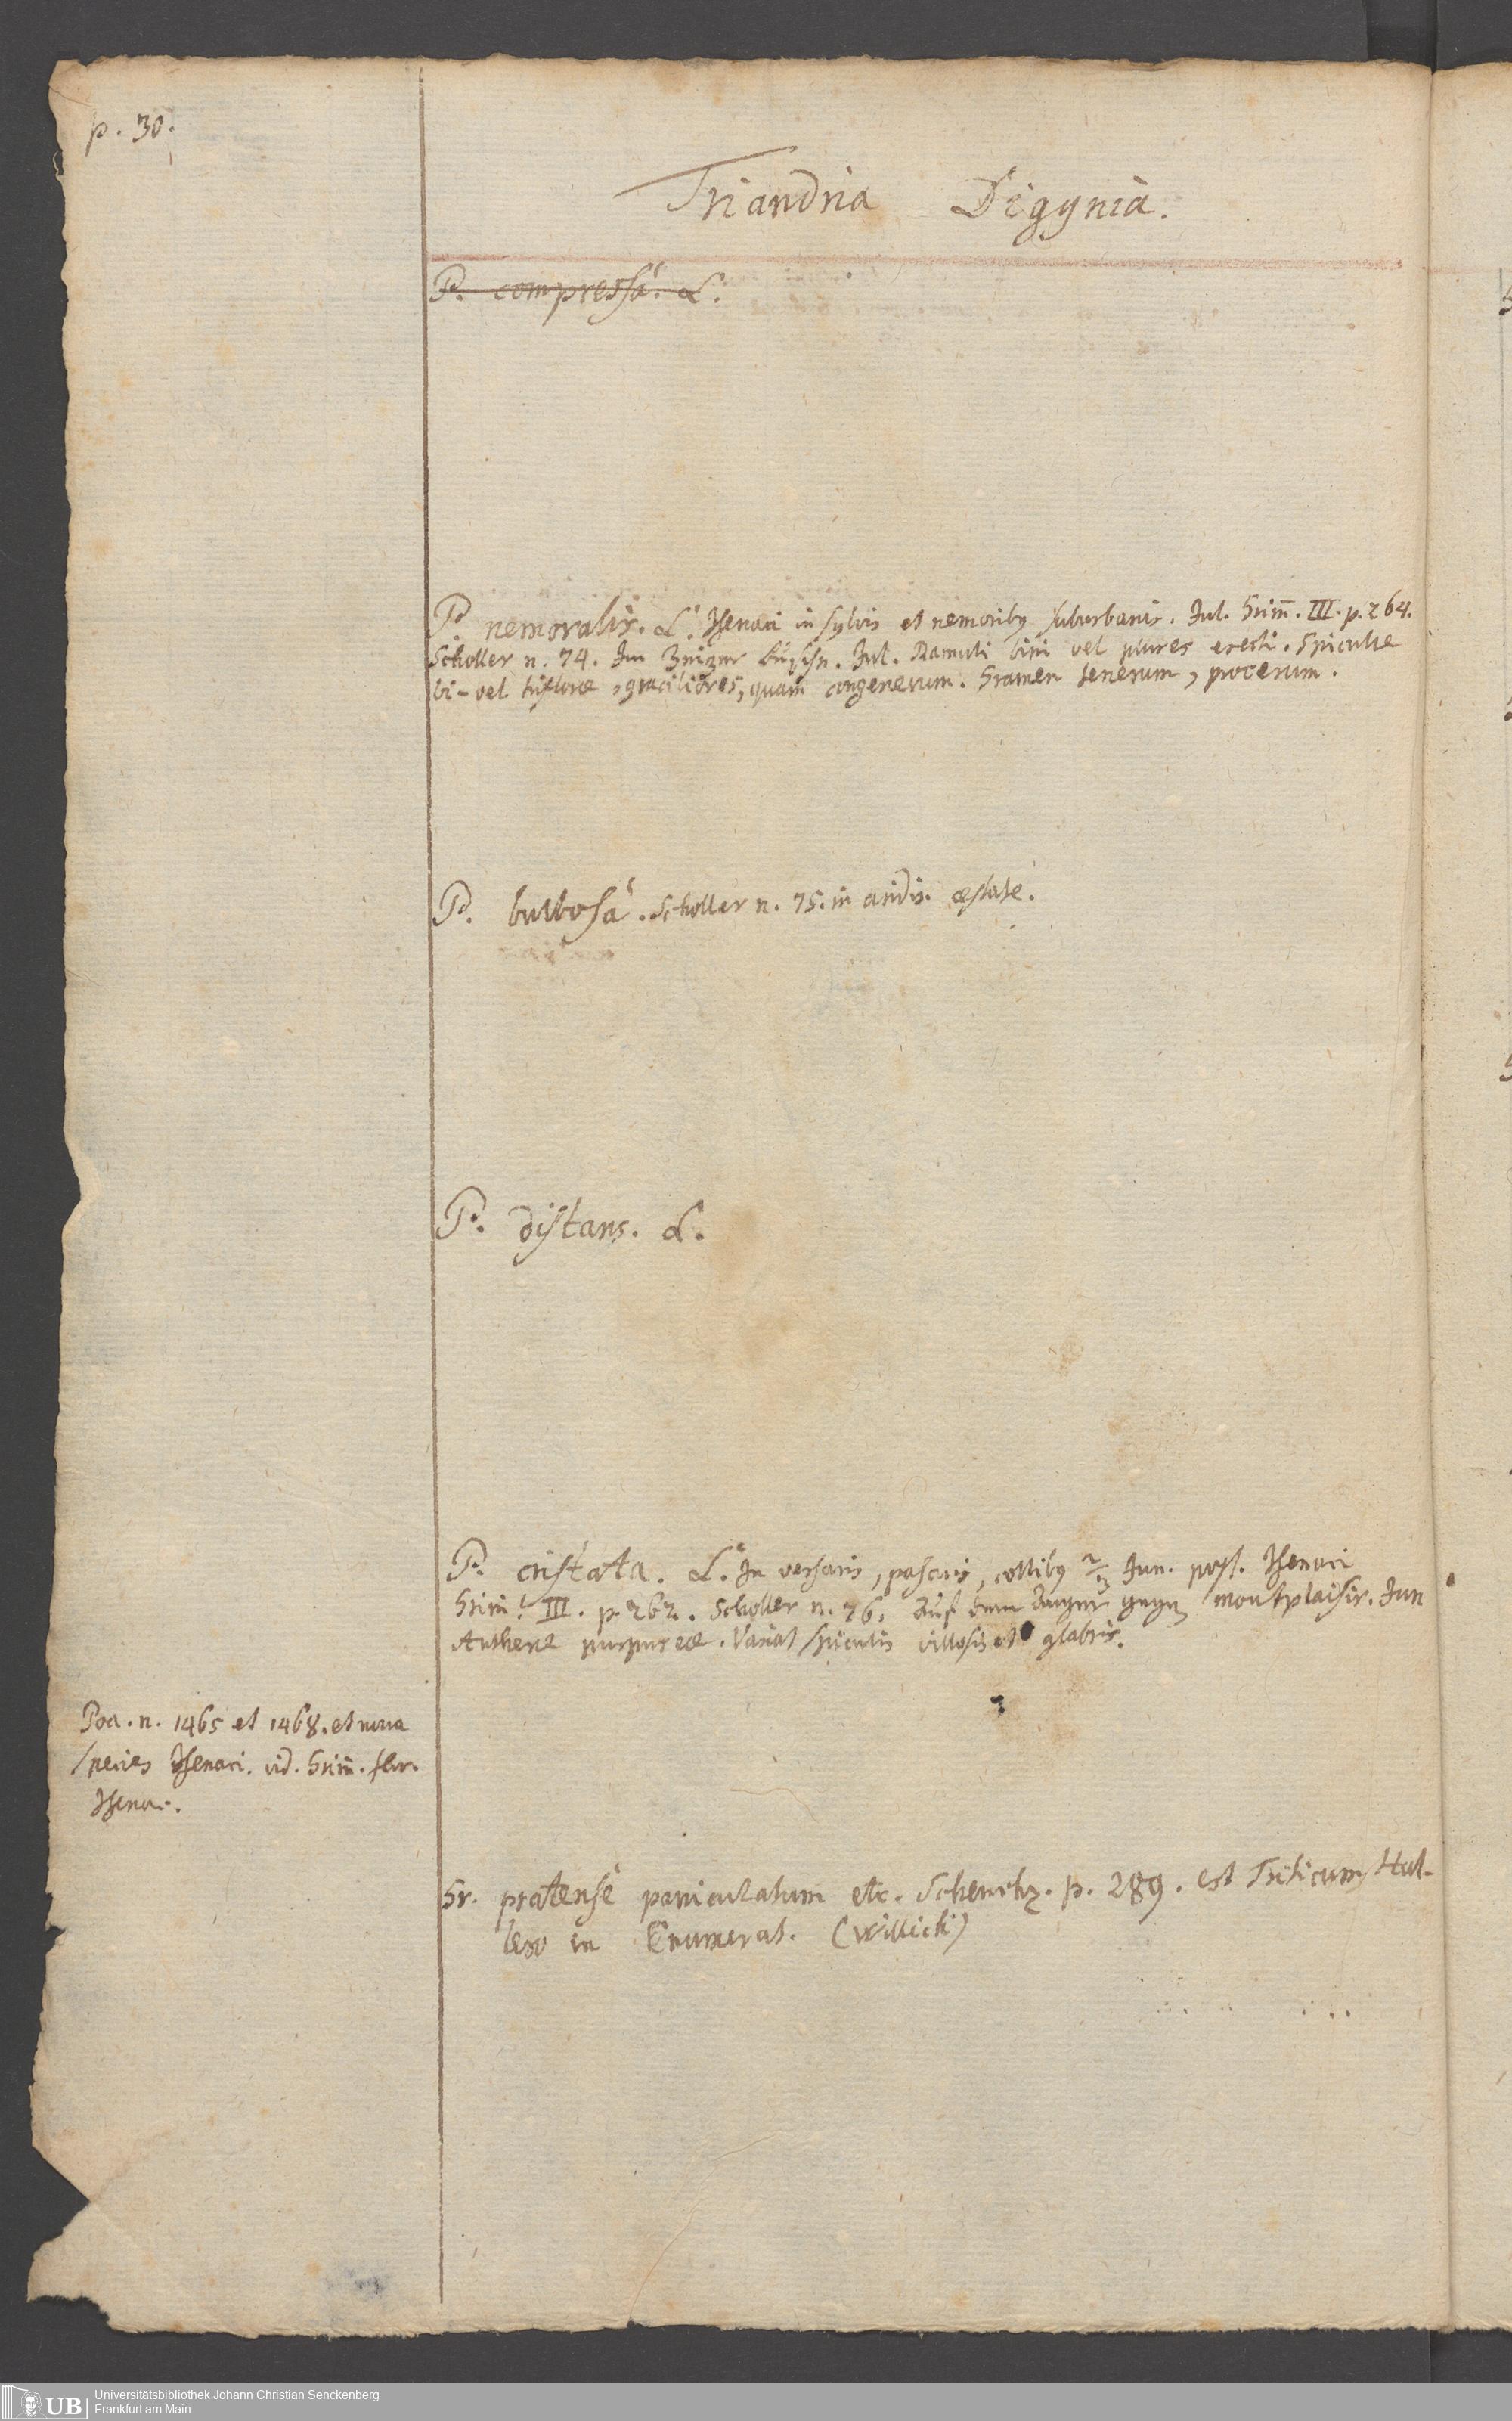 p. 30.
Triandria Digynia.
P. compressa. L.
P. nemoralis. L. Isenaci in sylvis et nemoribus suburbanis. Jul. Grim̄. III. p. 264.
Scholler n. 74. Im Zeizer Jul. Ramuli bini vel plures erecti. Spiculae
bi- vel triflorae, graciliores, quam congenerum. Gramen tenerum, procerum.
P. bulbosa. Scholler n. 75. in aridis. aestate.
P. distans. L.
P. cristata. L. In versuris, pascuis, collibus Jun. Isenaci
Grim̄. III. p. 262. Scholler n. 76. Auf dem Anger gegen montplaisir. Jun
Antherae purpureae. Variat spiculis villosis et glabris.
Poa. n. 1465 et 1468. et nova
species Isenaci. vid. Grim̄. flor.
Isenac.
Gr. pratense paniculatum etc. Scheuchz. p. 289. est Triticum Hal-
lero in Enumerat. (Willich)
Universitätsbibliothek Johann Christian Senckenberg
UB
Frankfurt am Main